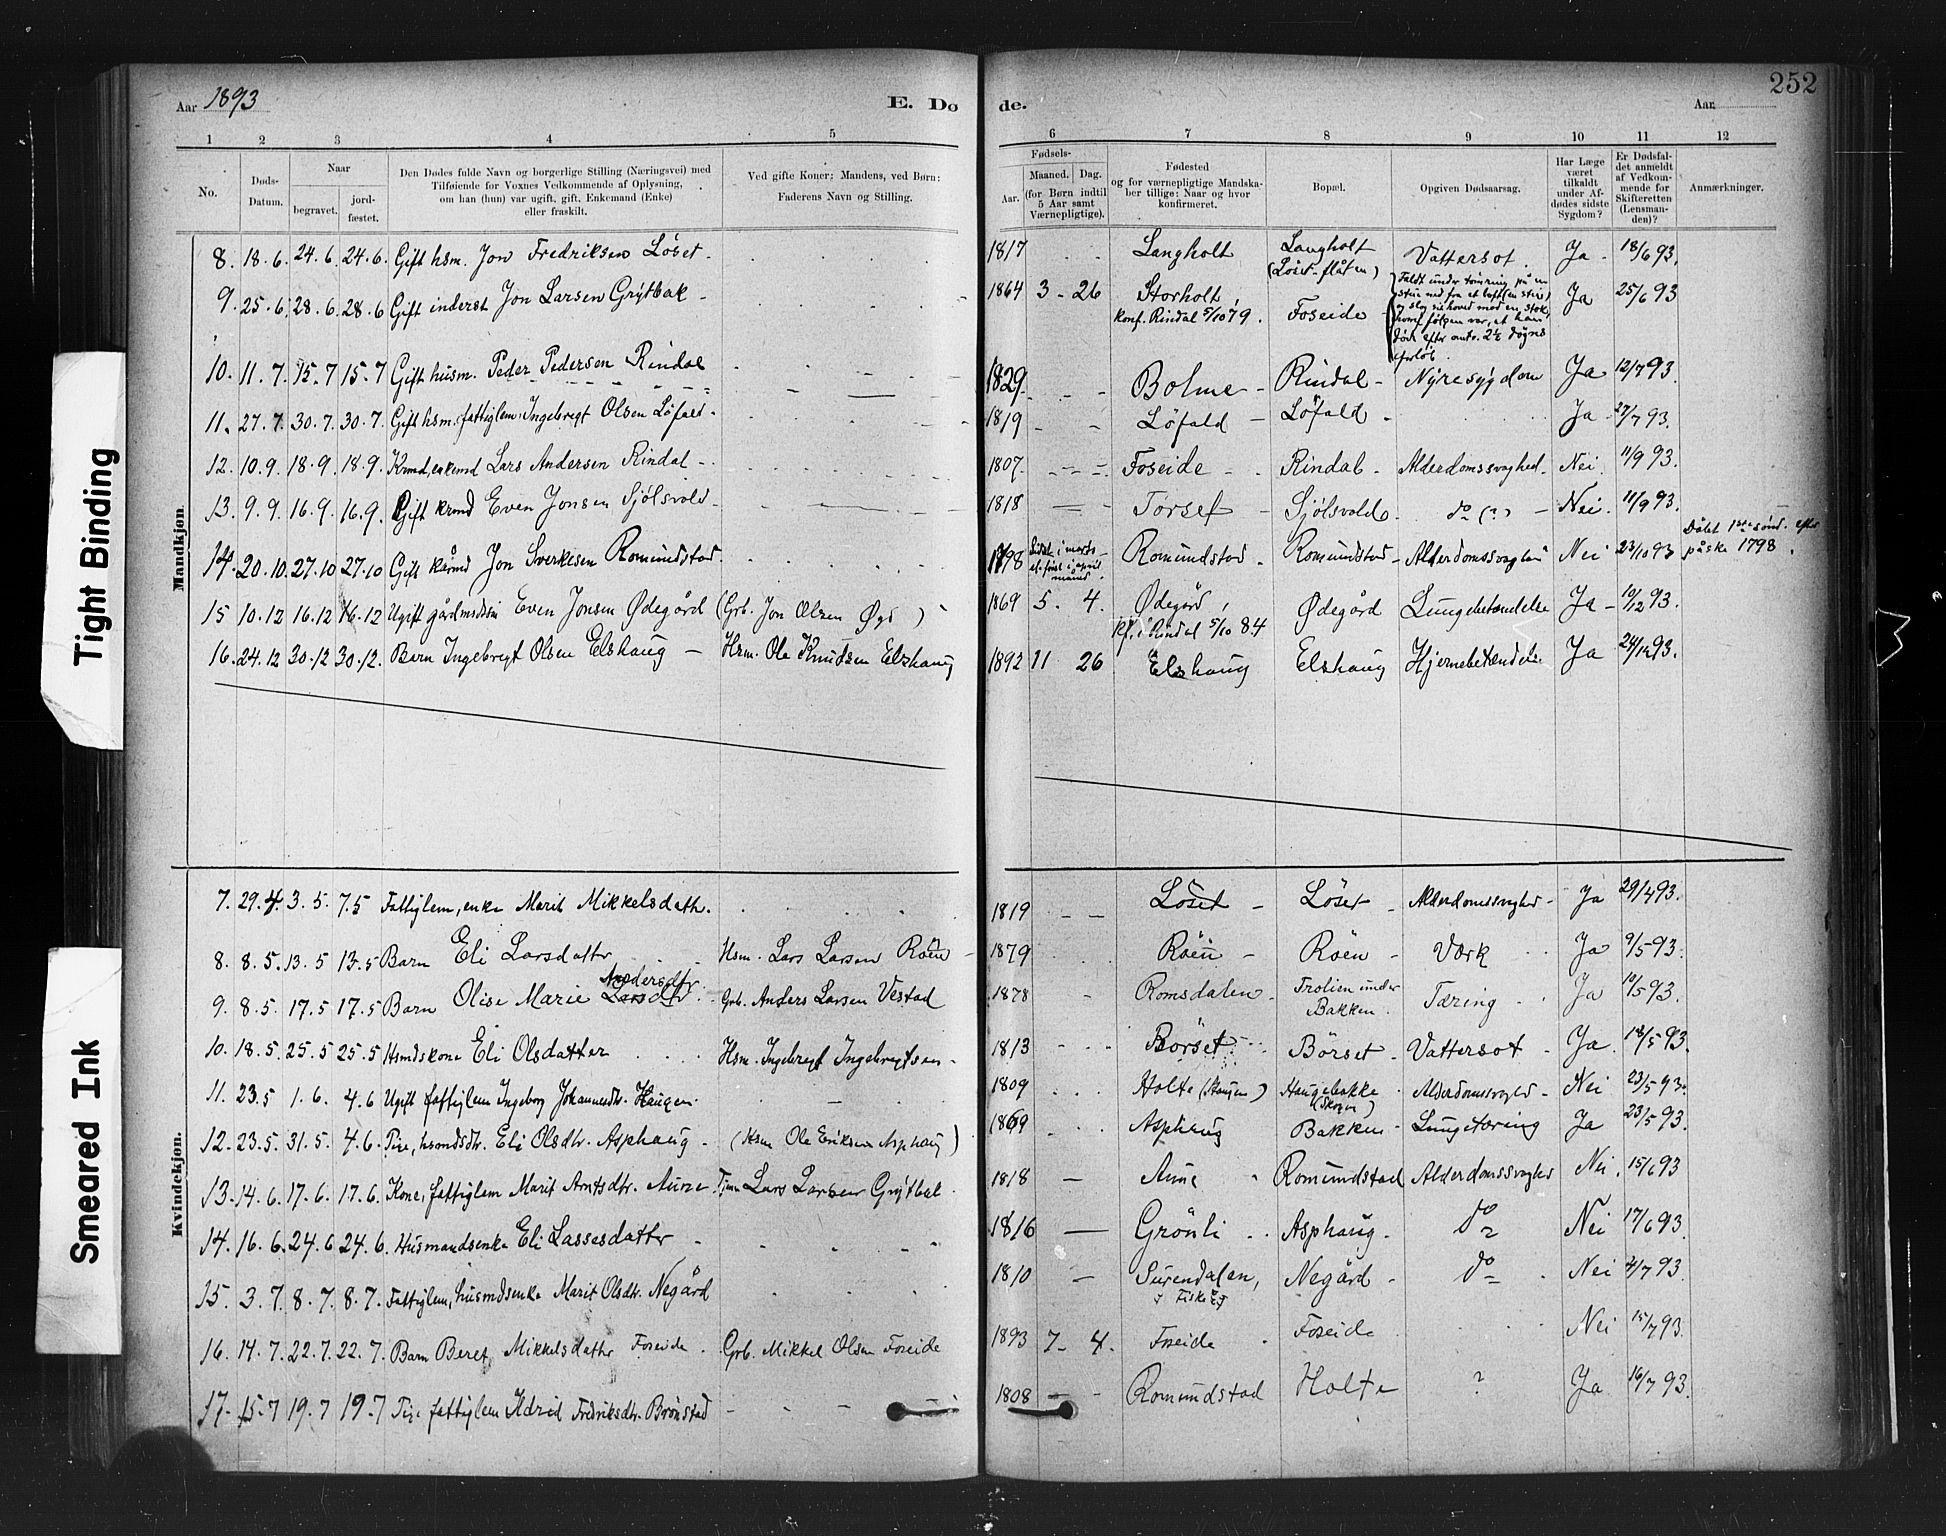 Aar 1893
E. Do de.
Aar
252
1 2 3 4 5 6 7 8 9 10 11 12
No.
Døds-Datum.
Naar
begravet.
jord-fæstet.
Den Dødes fulde Navn og borgerlige Stilling (Næringsvei) med
Tilføiende for Voxnes Vedkommende af Oplysning,
om han (hun) var ugift, gift, Enkemand (Enke)
eller fraskilt.
Ved gifte Koner: Mandens, ved Børn:
Faderens Navn og Stilling.
Fødsels-
Aar.
Maaned. Dag.
(for Børn indtil
5 Aar samt
Værnepligtige).
Fødested
og for værnepligtige Mandska-
ber tillige: Naar og hvor
konfirmeret.
Bopæl.
Opgiven Dødsaarsag.
Har Læge
været
tilkaldt
under Af-
dødes sidste
Sygdom?
Er Dødsfal-
det anmeldt
af Vedkom-
mende for
Skifteretten
(Lensman-
den)?
Anmærkninger.
Mandkjøn.
8. 18.6. 24.6. 24.6. Gift hsm. Jon Fredriksen Löset. 1817 Langholt Langholt (Löset-flåten) Vattersot. Ja 18/6 93.
9. 25.6. 28.6. 28.6. Gift inderst Jon Larsen Grytbak 1864 3 - 26 Storholt, konf. Rindal 5/10 79. Foseide Faldt under tömring på en stue ned fra et loft (en stue) og slog sit hoved mod en stok, hvoraf fölgen var, at han döde efter omtr. 2½ dögns forlöb. Ja 25/6 93
10. 11.7. 15.7 15.7 Gift husm. Peder Pedersen Rindal 1829 Bolme Rindal Nyresygdom Ja 12/7 93.
11. 27.7. 30.7. 30.7. Gift hsm. fattiglem Ingebregt Olsen Löfald. 1819 Löfald Löfald Ja 27/7 93.
12. 10.9. 18.9. 18.9. Kmd, enkemd Lars Andersen Rindal 1807. Foseide Rindal Alderdomssvaghed Nei. 11/9 93.
13. 9.9. 16.9. 16.9. Gift kmd Even Jonsen Sjölsvold 1818 Torset Sjölsvold do (?) Nei. 11/9 93.
14. 20.10. 27.10 27.10 Gift kårmd Jon Sverkesen Romundstad. 1798 Sidst i marts el. först i april måned. Romundstad Romundstad Alderdomssvaghed Nei 23/10 93 Döbt 1ste sönd. efter påske 1798.
15 10.12 16.12 16.12 Ugift gårdmdssön Even Jonsen Ødegård (Grb. Jon Olsen Øgd) 1869 5. 4. Ødegård, kf. i Rindal 5/10 84 Ødegård Lungebetændelse Ja 10/12 93.
16. 24.12 30.12 30.12. Barn Ingebregt Olsen Elshaug Hsm. Ole Knudsen Elshaug 1892 11 26 Elshaug Elshaug Hjernebetændelse Ja 24/12 93.
Kvindekjøn.
7. 29.4. 3.5. 7.5 Fattiglem, enke Marit Mikkelsdatter. 1819 Löset Löset Alderdomssvaghed Ja 29/4 93.
8. 8.5. 13.5 13.5 Barn Eli Larsdatter Hsm. Lars Larsen Röen 1879 Röen Röen Værk Ja 9/5 93.
9. 8.5. 17.5 17.5 Barn Olise Marie Larsdtr Andersdtr. Grb. Anders Larsen Vestad 1878 Romsdalen Trolien under Bakken. Tæring Ja 10/5 93.
10. 18.5. 25.5 25.5 Hsmdskone Eli Olsdatter Hsm. Ingebregt Ingebregtsen 1813 Börset Börset Vattersot Ja 18/5 93.
11. 23.5 1.6. 4.6 Ugift fattiglem Ingeborg Johannesdtr. Haugen 1809 Holte (Haugen) Haugebakke (Skogen) Alderdomssvaghed Nei 23/5 93.
12. 23.5. 31.5. 4.6. Pige, hsmdsdtr. Eli Olsdtr. Asphaug (Hsm Ole Eriksen Asphaug) 1869 Asphaug Bakken Lungetæring Ja 23/5 93.
13. 14.6. 17.6. 17.6. Kone, fattiglem Marit Arntsdtr. Aune Lars Larsen Grytbak 1818 Aune Romundstad Alderdomssvaghed Nei 15/6 93
14. 16.6. 24.6 24.6. Husmandsenke Eli Lassesdatter 1816 Grönli Asphaug do Nei 17/6 93.
15. 3.7. 8.7. 8.7. Fattiglem, husmdsenke Marit Olsdtr. Negård 1810 Surendalen, Negård do Nei 4/7 93.
16. 14.7. 22.7. 22.7. Barn Beret Mikkelsdatter Foseide. Grb. Mikkel Olsen Foseide 1893 7 4. Foseide Foseide Nei 15/7 93.
17. 15.7 19.7 19.7 Pige fattiglem Ildrid Fredriksdtr. Brönstad 1808 Romundstad Holte ? Ja 16/7 93.
Tight Binding
Smeared Ink